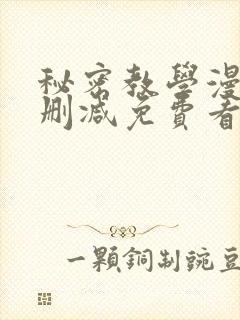 秘密教學漫
刪減免費看
一顆銅制豌豆